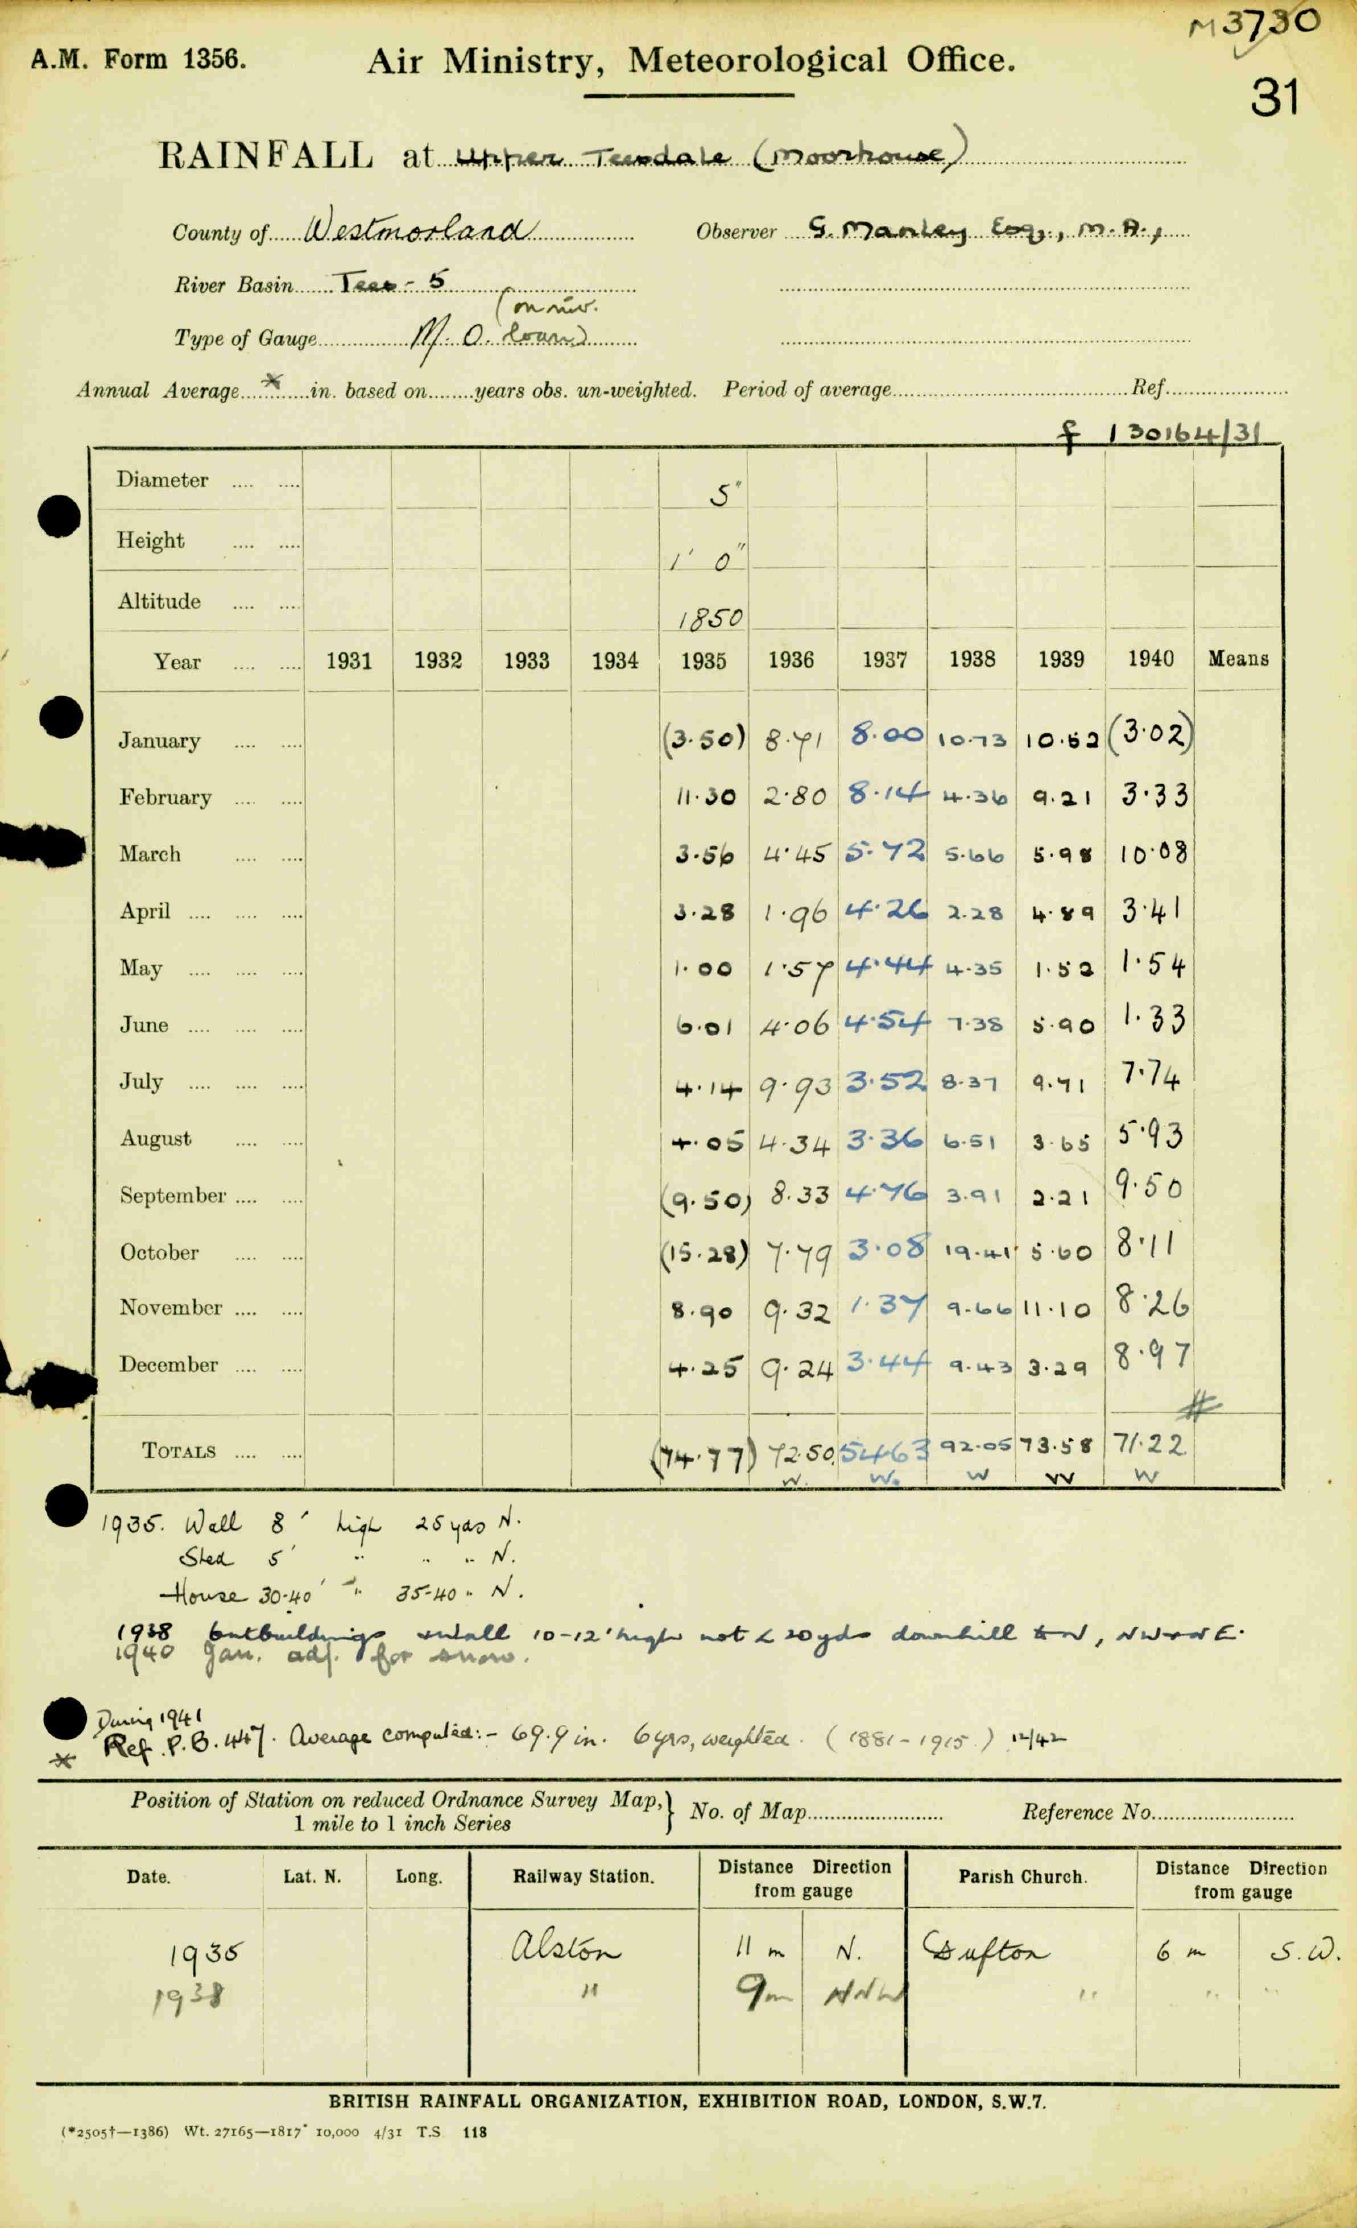 M3730
A.M. Form 1356. Air Ministry, Meteorological Office.
31
RAINFALL at Upper Teesdale (Moorhouse)
County of Westmorland Observer G. Manley Esq., M.A.,
River Basin Tees - 5
(on niv.
Type of Gauge M.O. loan)
Annual Average * in. based on years obs. un-weighted. Period of average Ref.
f 130164/31
Diameter 5"
Height 1' 0"
Altitude 1850
Year 1931 1932 1933 1934 1935 1936 1937 1938 1939 1940 Means
January (3.50) 8.71 8.00 10.73 10.52 (3.02)
February 11.30 2.80 8.14 4.36 9.21 3.33
March 3.56 4.45 5.72 5.66 5.98 10.08
April 3.28 1.96 4.26 2.28 4.89 3.41
May 1.00 1.57 4.44 4.35 1.52 1.54
June 6.01 4.06 4.54 7.38 5.90 1.33
July 4.14 9.93 3.52 8.37 9.71 7.74
August 4.05 4.34 3.36 6.51 3.65 5.93
September (9.50) 8.33 4.76 3.91 2.21 9.50
October (15.28) 7.79 3.08 19.41 5.60 8.11
November 8.90 9.32 1.37 9.66 11.10 8.26
December 4.25 9.24 3.44 9.43 3.29 8.97
#
TOTALS (74.77) 72.50 54.63 92.05 73.58 71.22
W. W. W W W
1935. Wall 8' high 25 yds N.
Shed 5' " " " N.
House 30-40' " 35-40 " N.
1938 Outbuildings & wall 10-12' high not < 20 yds downhill to N, NW & NE.
1940 Jan. adj. for snow.
During 1941
* Ref. P.B. 447. Average computed:- 69.9 in. 6 yrs, weighted. (1881-1915) 12/42
Position of Station on reduced Ordnance Survey Map, } No. of Map Reference No.
1 mile to 1 inch Series
Date. Lat. N. Long. Railway Station. Distance Direction from gauge Parish Church. Distance Direction from gauge
1935 Alston 11 m N. Dufton 6 m S.W.
1938 " 9m NNW " " "
BRITISH RAINFALL ORGANIZATION, EXHIBITION ROAD, LONDON, S.W.7.
(*2505†—1386) Wt. 27165—1817 10,000 4/31 T.S 118